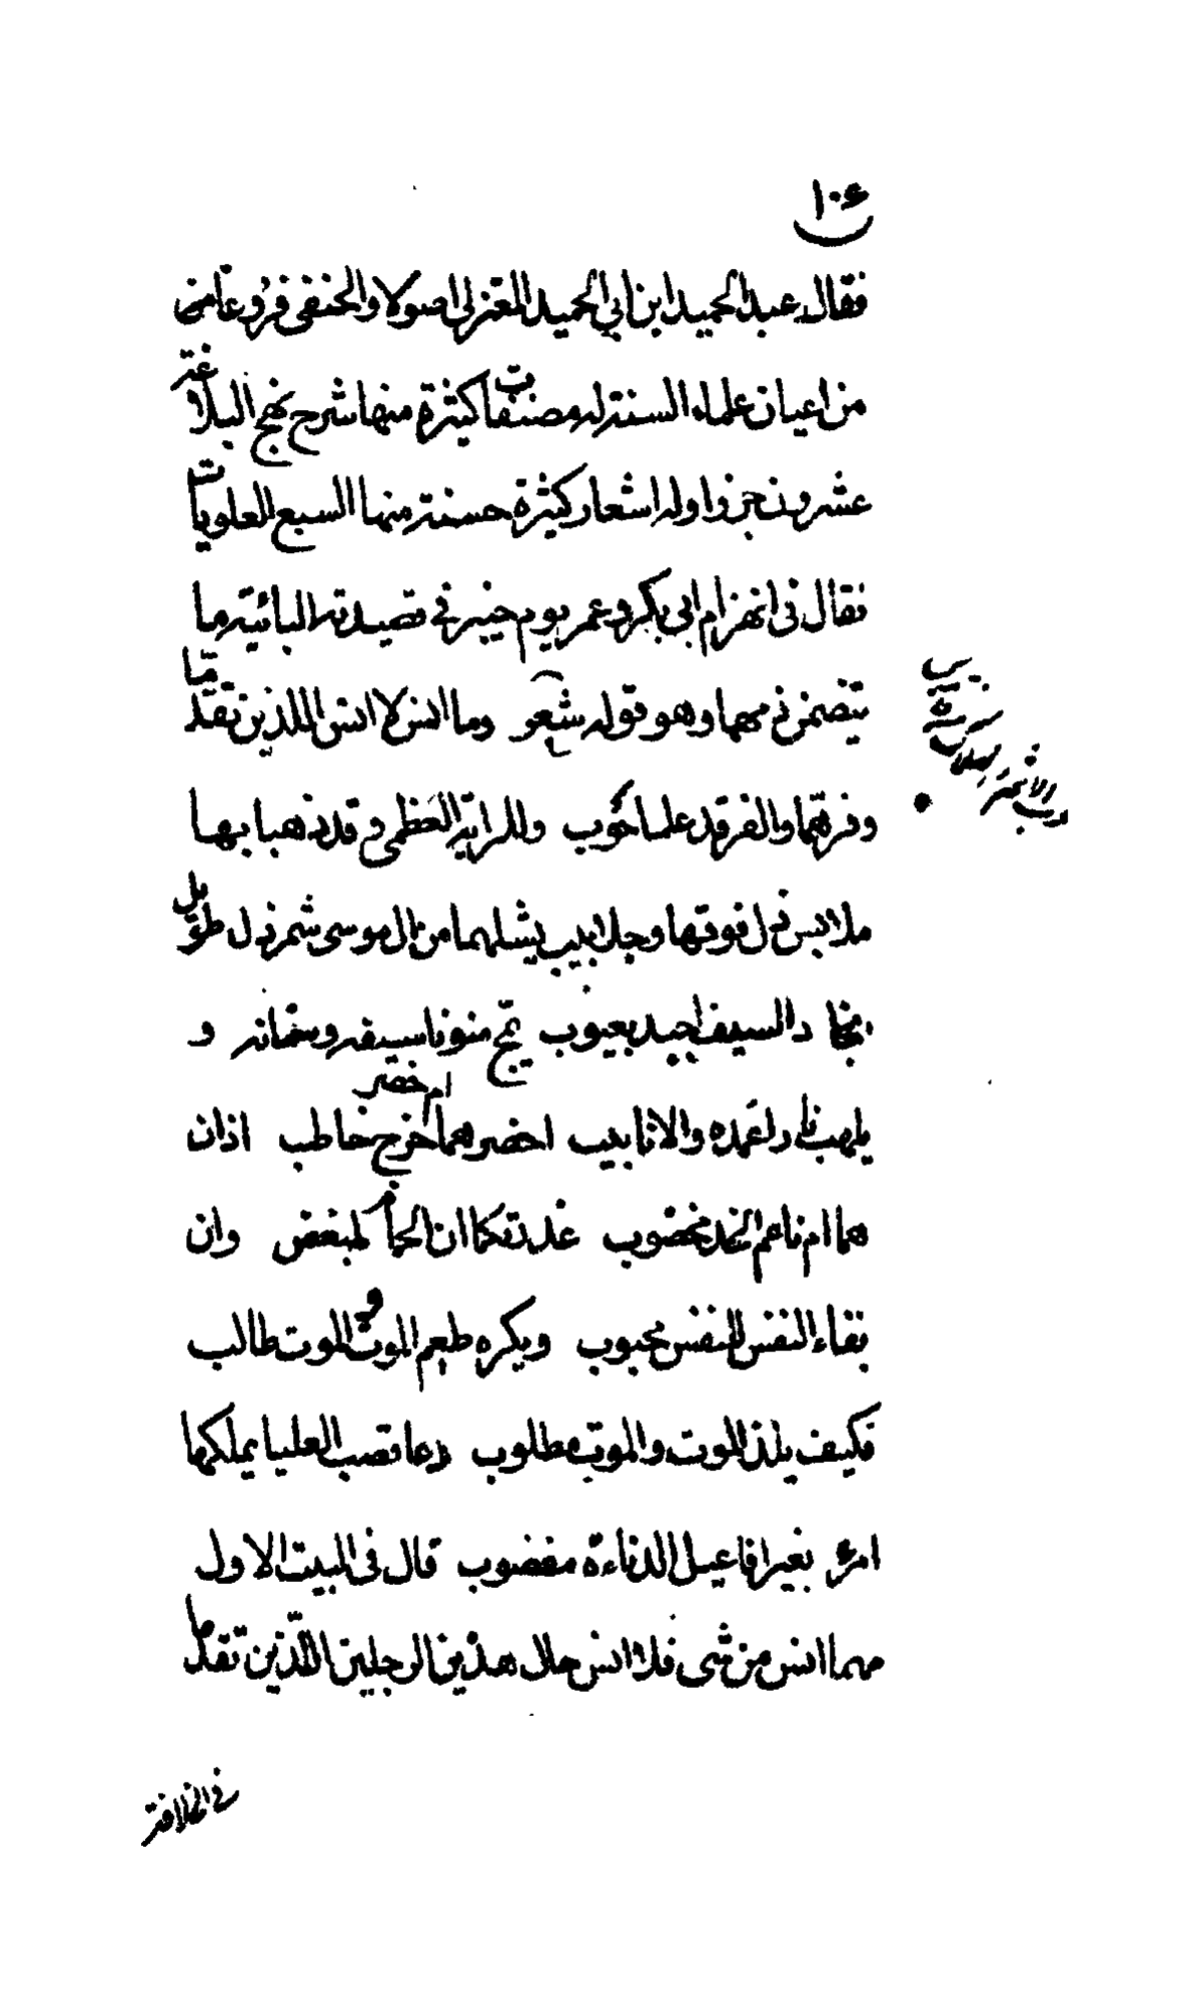 ١٠٤
فقال عبد الحميد ابن ابي الحميد المعتزلى اصولا والحنفى فروعا من
من اعيان علماء السنة له مصنفات كثيرة منها شرح نهج البلاغة
عشرون جزوا وله اشعار كثيرة حسنة منها السبع العلويات
فقال فى انهزام ابى بكر وعمر يوم خيبر فى قصيدته البائية ما
يتضمن ذمهما وهو قوله شعر وما انس لا انس اللذين تقدما
وفرهما والفر قد علما حوب وللراية العظمى وقد ذهبا بها
ملابس ذل فوقها وجلابيب يشلهما من ال موسى شمردل طويل
نجاد السيف اجيد يعبوب يمج منونا سيفه وسنانه و
يلهب نارا غمده والانابيب احضرهما ام حضر اخرج خاطب اذان
هما ام ناعم الخد مخضوب عذرتكما ان الحمام لمبغض وان
بقاء النفس للنفس محبوب ويكره طعم الموت والموت طالب
فكيف يلذ الموت والموت مطلوب دعا قصب العليا يملكها
امرء بغير افاعيل الدناءة مقضوب قال فى البيت الاول
مهما انس من شى فلا انس حال هذين الرجلين اللذين تقدما
فى الخلافة